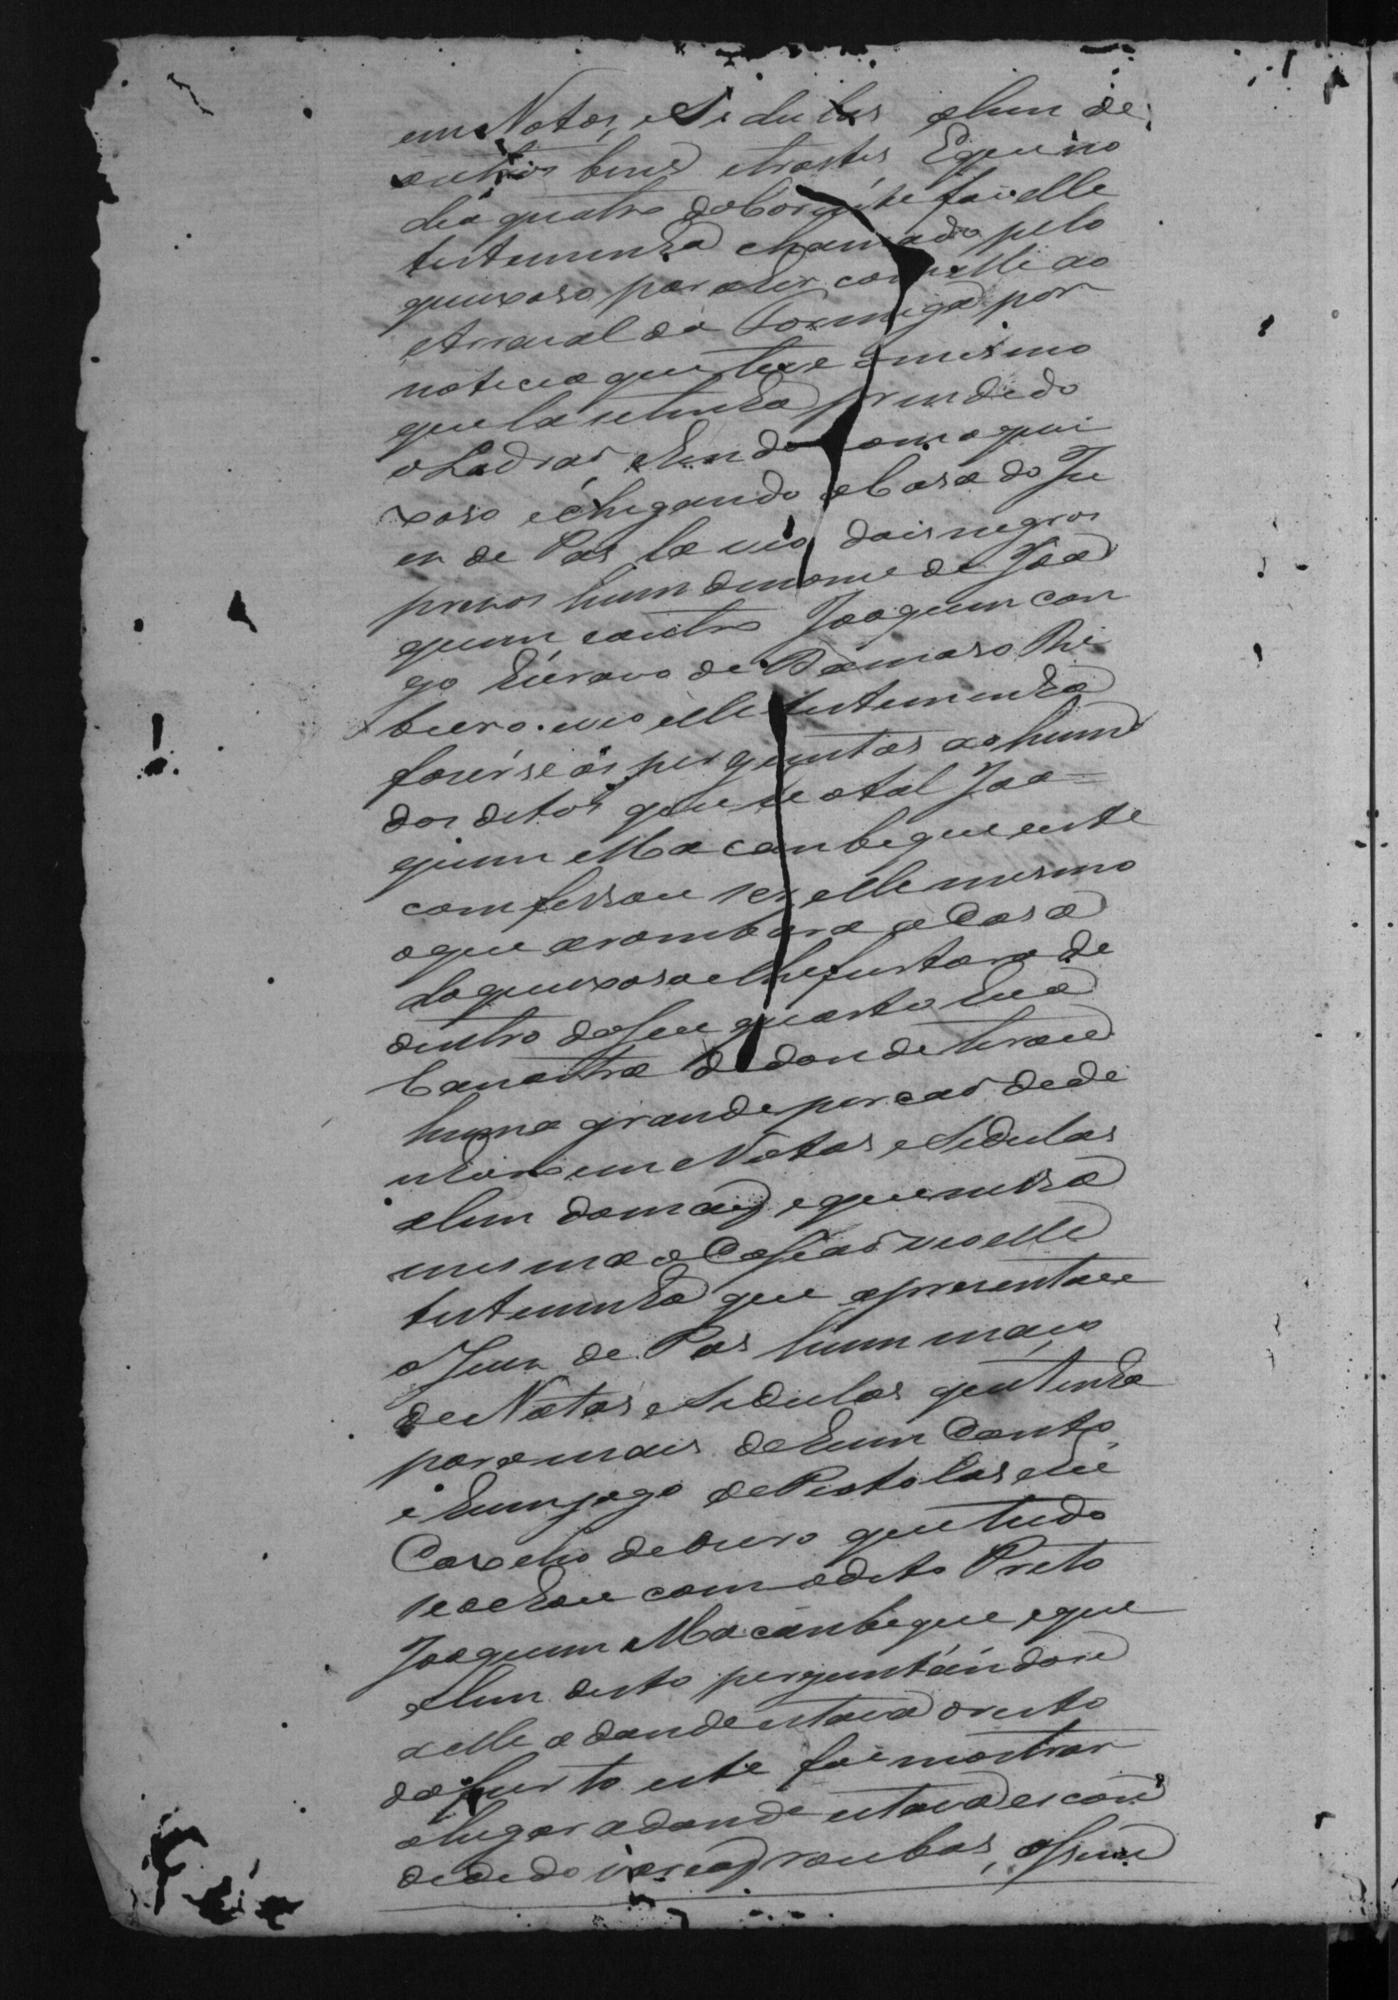 em Notas, e Sedulas alem de
outros bens etrastes Eque no
dia quatro docorrente foi elle
testemunha chamado pelo
queixoso para hir com elle ao
Arraial da Formiga por
noticia que teve omesmo
que la setinha prendido
o Ladraõ eindo com oquei
xoso echegando a Casa do Ju
is de Pas la vio dois negros
prezos hum denome de Joa
quim, eoutro Joaquim Con
go Escravo de Damaso Ri
beiro. vio elle testemunha
fazerse as perguntas ao hum
dos ditos que he otal Joa=
quim Macanbique e este
comfessou ser elle mesmo
oque arombara a Casa
doqueixoso elhefurtara de
dentro doseu quarto hua
Canastra dedonde tirou
huma grande porcaõ dedi
nheiro em Notas e Sedulas
alem domais eque nessa
mesma o Casiaõ vio elle
testemunha que apresentou
o Juis de Pas hum maço
de Notas e Sedulas que tinha
para mais de hum Conto,
e hum jogo de Pistolas e hu
Coxelio de ouro que tudo
seachou com odito Preto
Joaquim Macanbique, eque
alem disto perguntandose
aelle adonde estava oresto
dofurto este foi mostrar
olugar adonde estava escon
didido varias roubas, assim